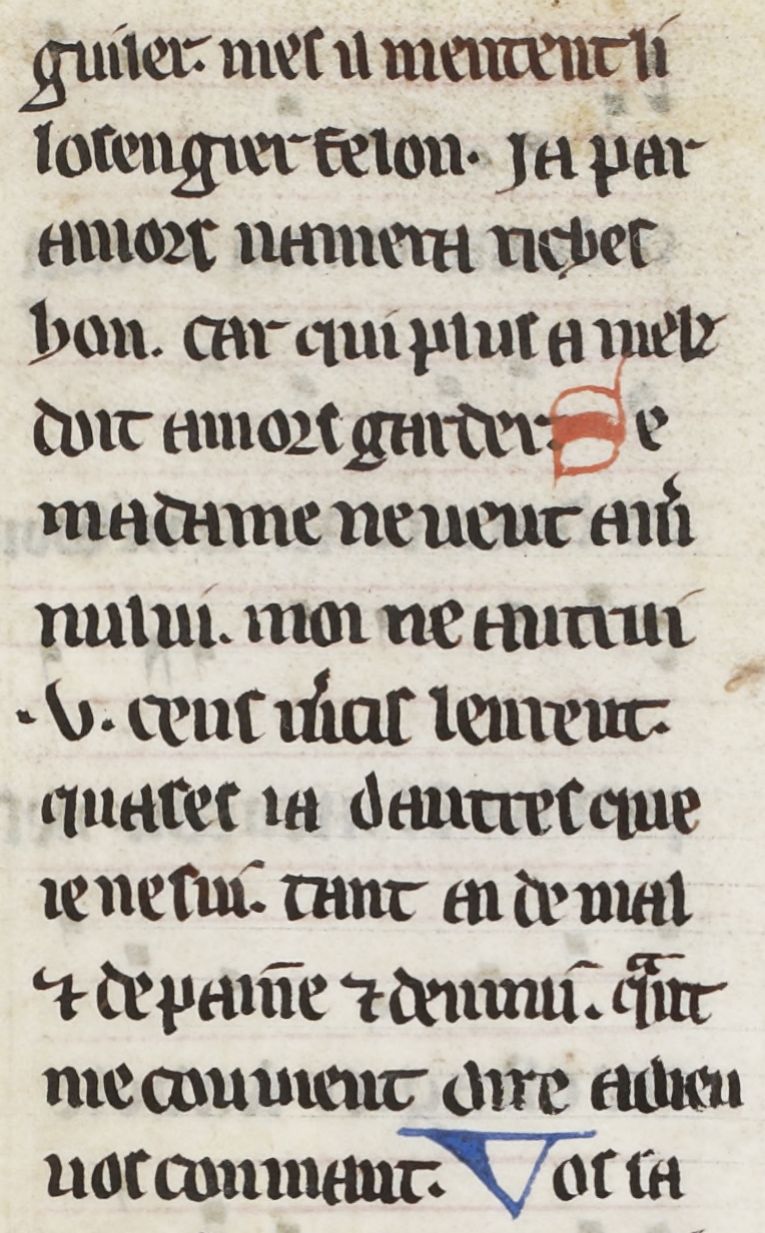 guiler. mes il mentent li
losengier felon. Ja par
amors namera riches
hon. car qui plus a melz
doit amors garder. Se
madame ne ueut am̾
nului. moi ne autrui
.v. cens m̾cis len rent.
quases ia dautres que
ie ne sui. tant ai de mal
⁊ de paine ⁊ denmii. q̃nt
me couuient dire adieu
uos conmant. Vos sa